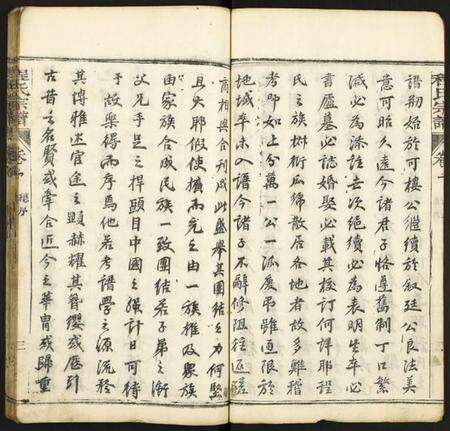 程氏宗譜 卷一
譜創始於可樓公繼續於叙廷公良法美
意可昭久遠今諸君子恪遵舊制丁口繁
減必為添註去次絕續必為表明生卒必
書廬墓必誌婚娶必載其校訂何詳耶程
氏之族椒衍瓜綿散居各地者故多難稽
考即如上分萬一公一派慶弔雖通限於
地域卒未入譜今諸子不辭修阻往返
商相與合刊成此盛舉其團結之力何堅
且大耶假使擴而充之由一族推及眾族
由家族合成民族一致團結若子弟之衛
父兄手足之捍頭目中國之強計日可待
予故樂得而序焉他若考譜學之源流矜
其博雅述宦途之顯赫耀其簪纓或
古昔之名賢或牽合近今之華胄或歸重
程氏宗譜 卷 序 三